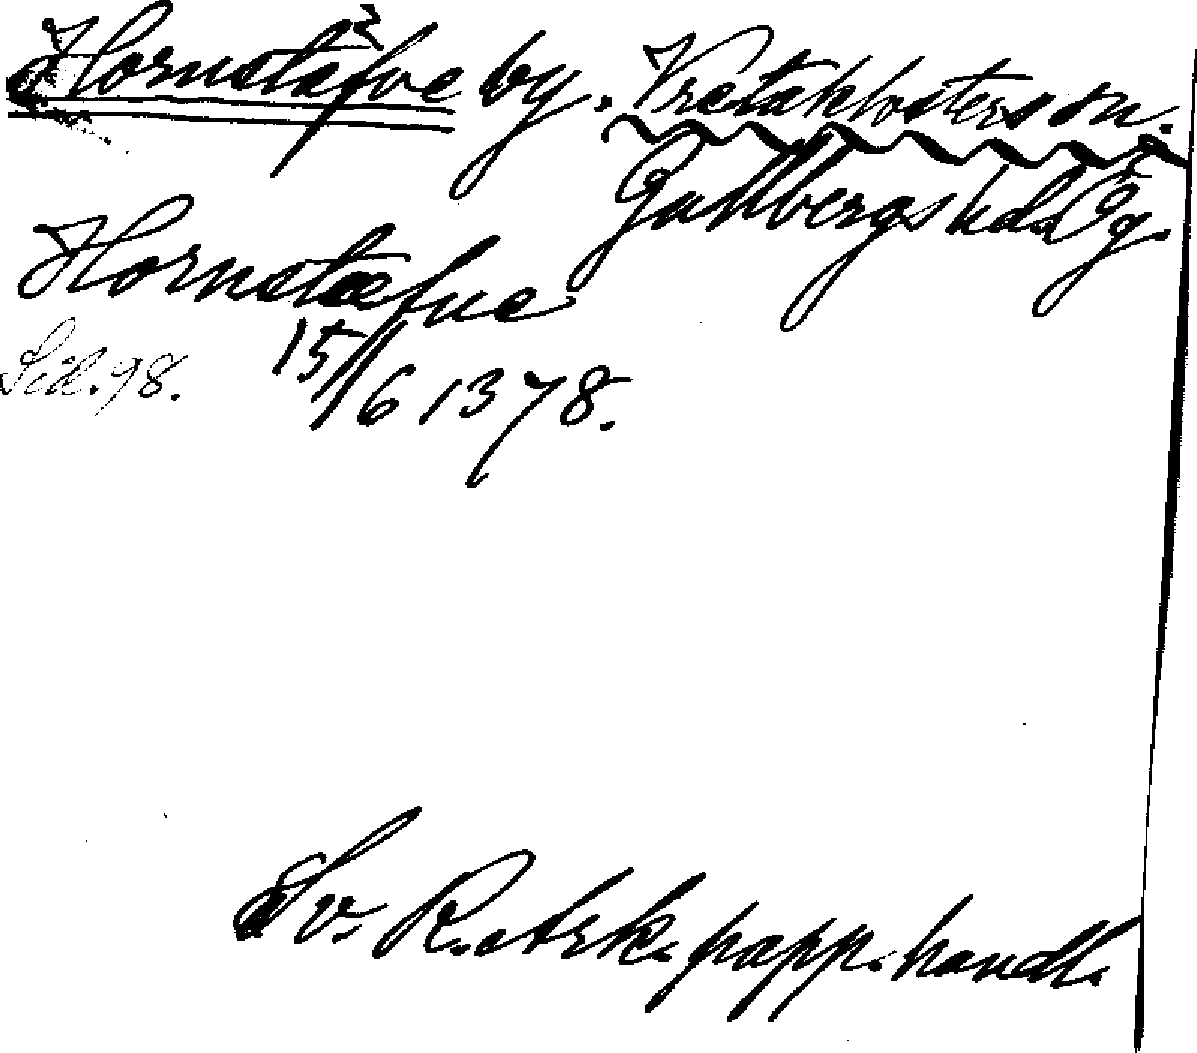 Hornstäfve by. Vretaklosters sn.
Gullbergs hd. Ög.
Hornstæfue
Sid. 98. 15/6 1378.
Sv. R. arks. papp. handl.